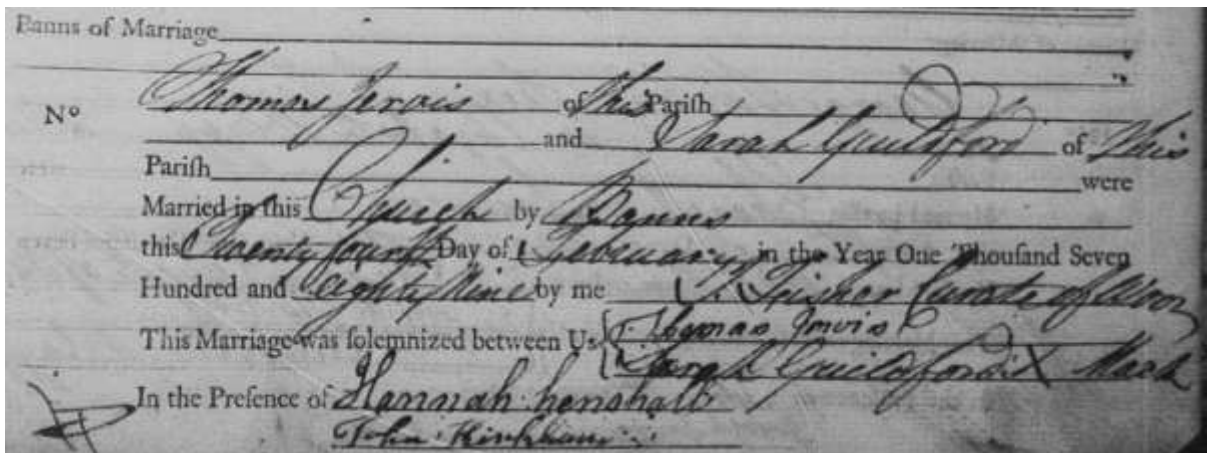 Banns of Marriage
Nº Thomas Jervis of this Pariſh
and Sarah Guildford of this
Pariſh were
Married in this Church by Banns
this Twenty fourth Day of February in the Year One Thouſand Seven
Hundred and eighty Nine by me J. Fisher Curate of
This Marriage was ſolemnized between Us Thomas Jervis
Sarah Guildford X Mark
In the Preſence of Hannah henshall
John Kirkham